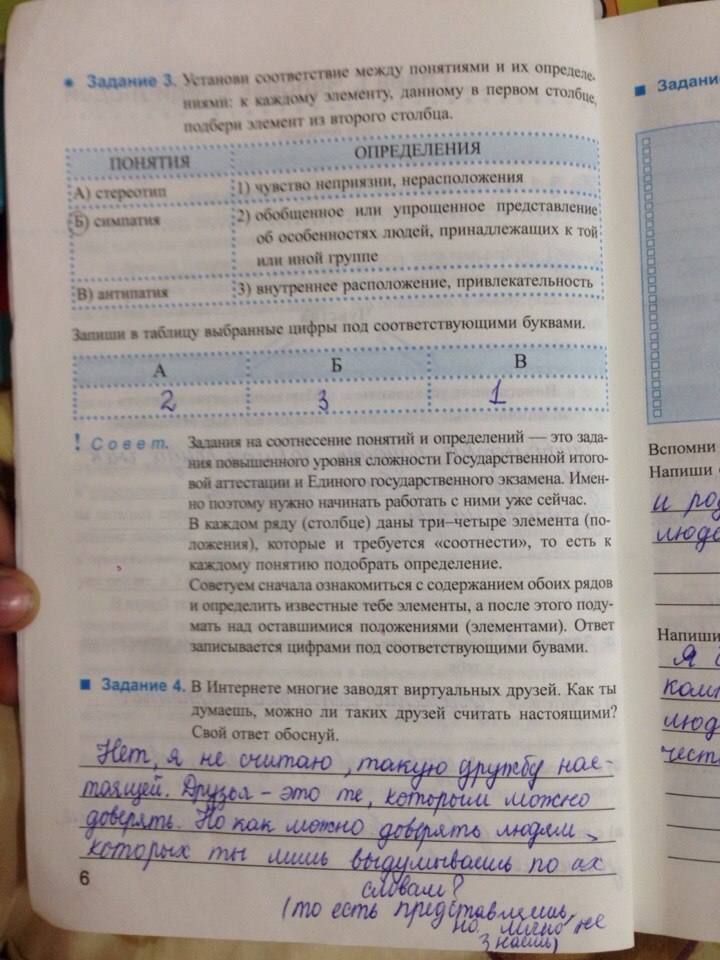 • Задание 3. Установи соответствие между понятиями и их определе-
ниями: к каждому элементу, данному в первом столбце,
подбери элемент из второго столбца.
ПОНЯТИЯ
ОПРЕДЕЛЕНИЯ
А) стереотип
1) чувство неприязни, нерасположения
Б) симпатия
2) обобщенное или упрощенное представление
об особенностях людей, принадлежащих к той
или иной группе
В) антипатия
3) внутреннее расположение, привлекательность
Запиши в таблицу выбранные цифры под соответствующими буквами.
А Б В
2 3 1
! Совет. Задания на соотнесение понятий и определений — это зада-
ния повышенного уровня сложности Государственной итого-
вой аттестации и Единого государственного экзамена. Имен-
но поэтому нужно начинать работать с ними уже сейчас.
В каждом ряду (столбце) даны три–четыре элемента (по-
ложения), которые и требуется «соотнести», то есть к
каждому понятию подобрать определение.
Советуем сначала ознакомиться с содержанием обоих рядов
и определить известные тебе элементы, а после этого поду-
мать над оставшимися положениями (элементами). Ответ
записывается цифрами под соответствующими бувами.
■ Задание 4. В Интернете многие заводят виртуальных друзей. Как ты
думаешь, можно ли таких друзей считать настоящими?
Свой ответ обоснуй.
Нет, я не считаю, такую дружбу нас-
тоящей. Друзья – это те, которым можно
доверять. Но как можно доверять людям,
которых ты лишь выдумываешь по их
словам?
(то есть представляешь,
но лично не
знаешь)
6
■ Задани
Вспомни
Напиши
и род
людо
Напиши
Я
комп
люд
чест